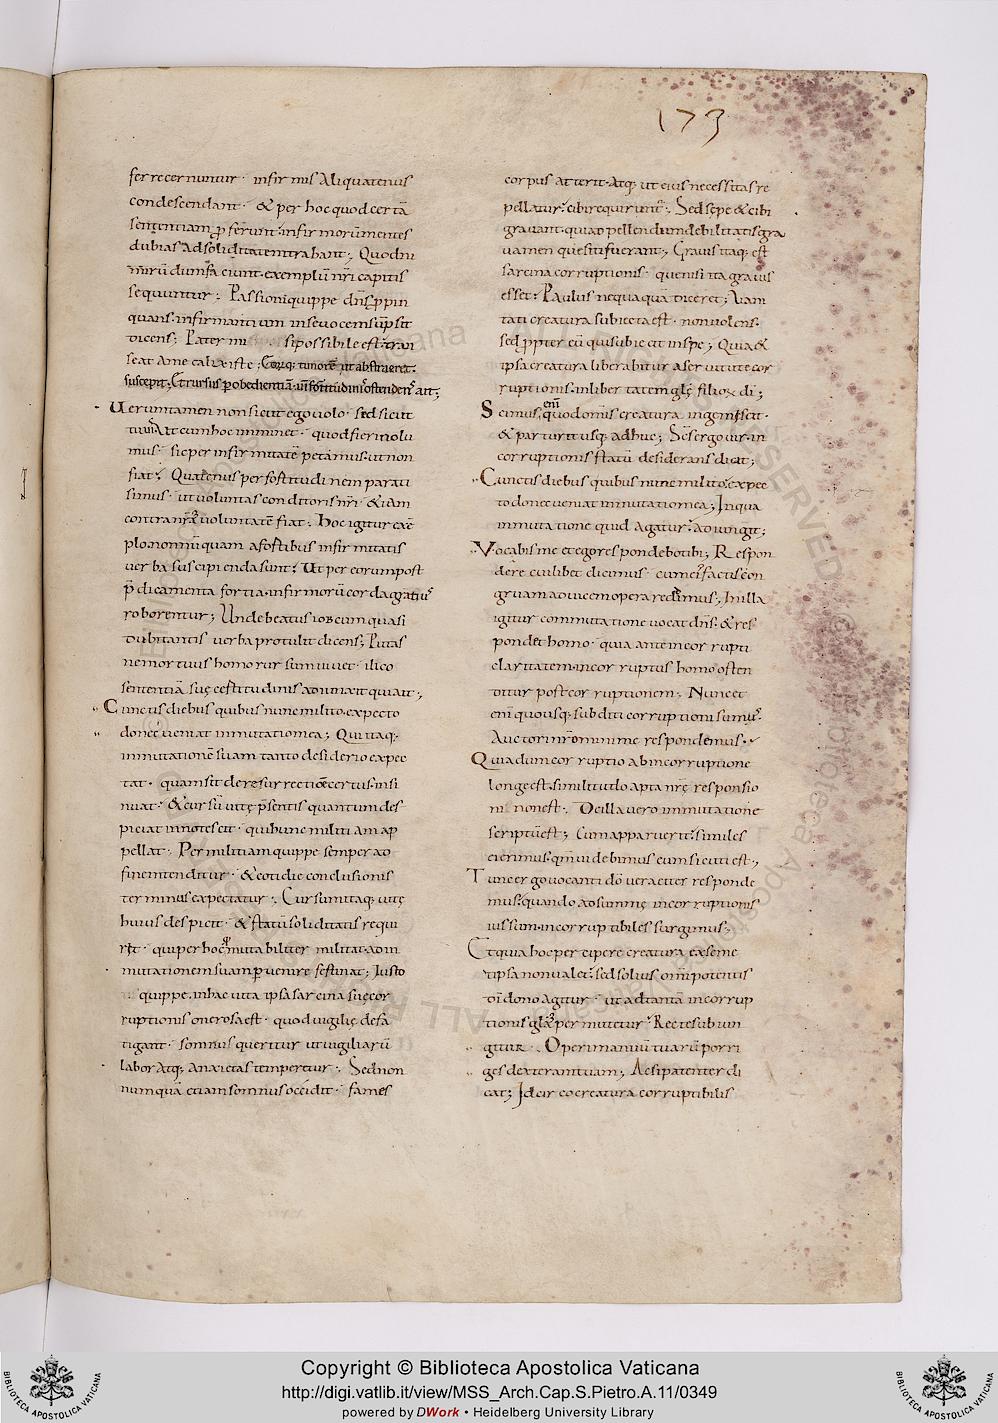 173
fer recernuntur· infirmis Aliquatenus
condescendant· & per hoc quod certā
sententiam ꝓferunt· infirmorū mentes
dubias Ad soliditatem trahant;, Quod ni
mirū dum faciunt· exemplū nr̄i capitis
sequuntur; Passioni quippe dn̄s ꝓpin
quans· infirmantium in se uocem sūpsit
dicens; Pater mi si possibile est tran
seat A me calix iste;
suscepit; Et rursus ait;
Uerumtamen non sicut ego uolo· sed sicut
tu uis Ait cum hoc imminet· quod fieri nolu
mus· sic per infirmitatē petamus· ut non
fiat· Quatenus per fortitudinem parati
simus· ut uoluntas conditoris nr̄i· & iam
contra nr̄ā uoluntatē fiat·. Hoc igitur exē
plo· nonnūquam A fortibus infirmitatis
uerba suscipienda sunt· Ut per eorum post
p̄dicamenta fortia· infirmorū corda grauius
roborentur; Unde beatus iob cum quasi
dubitantis uerba protulit dicens; Putas
ne mortuus homo rursum uiuet· ilico
sententiā suę certitudinis adiunxit qua ait;,
Cunctis diebus quibus nunc milito· expecto
donec ueniat inmutatio mea; Qui itaq;
inmutationē suam tanto desiderio expec
tat· quam sit de resurrectiōe certus· insi
nuat· & cursū uitę p̄sentis quantum des
piciat innotescit· qui hunc militiam Ap
pellat·. Per militiam quippe semper Ad
finem tenditur· & cotidie conclusionis
terminus expectatur·. Cursum itaq; uitę
huius despicit· & statū soliditatis requi
rit· qui per hoc q̊ mutabiliter militat· Ad in
mutationem suam ꝑuenire festinat; Iusto
quippe· in hac uita ipsa sarcina suę cor
ruptionis onerosa est· quod uigilię defa
tigant· somnus queritur ut uigiliarū
labor Atq; Anxietas temperetur·. Sed non
numquā etiam somnus occidit· fames
corpus Atterit· Atq; ut eius necessitas re
pellatur· cibi requirunt̄·. Sed sępe & cibi
grauant· qui Ad pellendum debilitatis gra
uamen quesiti fuerant;, Grauis itaq; est
sarcina corruptionis· quę nisi ita grauis
esset· Paulus nequaquā diceret; Vani
tati creatura subiecta est· non uolens·
sed ꝓpter eū qui subiecit in spe; Quia &
ipsa creatura liberabitur A seruitute cor
ruptionis· in libertatem glę filiorum di̅;
Scimus enī quod omnis creatura ingemiscit·
& parturit usq; adhuc; Scs̄ ergo uir· in
corruptionis statū desiderans dicat;
Cunctis diebus quibus nunc milito· expec
to donec ueniat inmutatio mea; In qua
inmutatione quid Agatur· Adiungit;
Vocabis me et ego respondebo tibi; Respon
dere cuilibet dicimus· cum eius factis con
gruam Ad uicem opera reddimus; In illa
igitur commutatione uocat dn̄s· & res
pondet homo· quia Ante incorrupti
claritatem· incorruptus homo osten
ditur post corruptionem·. Nunc et
enī quousq; subditi corruptioni sumus·
Auctori nr̄o minime respondemus·
Quia dum corruptio Ab incorruptione
longe est· similitudo Apta nr̄ę responsio
ni non est·. De illa uero inmutatione
scriptū est; Cum Apparuerit· similes
ei erimus· qm̄ uidebimus eum sicuti est;
Tunc ergo uocanti dō ueraciter responde
mus· quando Ad summę incorruptionis
iussum· incorruptibiles surgimus;
Et quia hoc percipere creatura ex semet
ipsa non ualet· sed solius omīpotentis
dī dono Agitur· ut Ad tantā incorrup
tionis glam permutetur· Recte subiun
gitur·. Operi manuū tuarū porri
ges dexteram tuam;, Ac si patenter di
cat; Idcirco creatura corruptibilis
Copyright © Biblioteca Apostolica Vaticana
http://digi.vatlib.it/view/MSS_Arch.Cap.S.Pietro.A.11/0349
powered by DWork • Heidelberg University Library
BIBLIOTECA APOSTOLICA VATICANA
BIBLIOTECA APOSTOLICA VATICANA